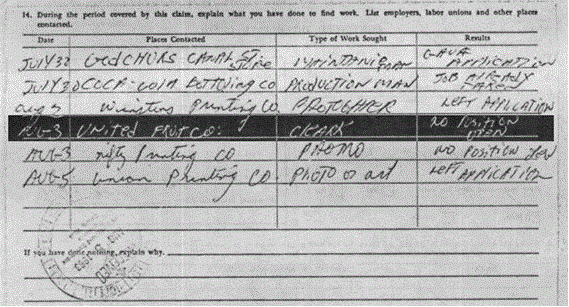 14. During the period covered by this claim, explain what you have done to find work. List employers, labor unions and other places
contacted.
Date Places Contacted Type of Work Sought Results
GAVE
JULY 30 GODCHURS CANAL ST. STORE MAINTAINENCE MAN APPLICATION
JULY 30 COCA-COLA BOTTLING CO PRODUCTION MAN JOB ALREADY
TAKEN
Aug 2 Winston Printing CO LEFT APPLICATION
AUG-3 UNITED FRUT CO. CLEARK NO POSITION
OPEN
AUG-3 nifty Printing CO PHOTO NO POSITION
AUG-5 Union Printing CO. PHOTO or art LEFT
APPLICATION
If you have done nothing, explain why.